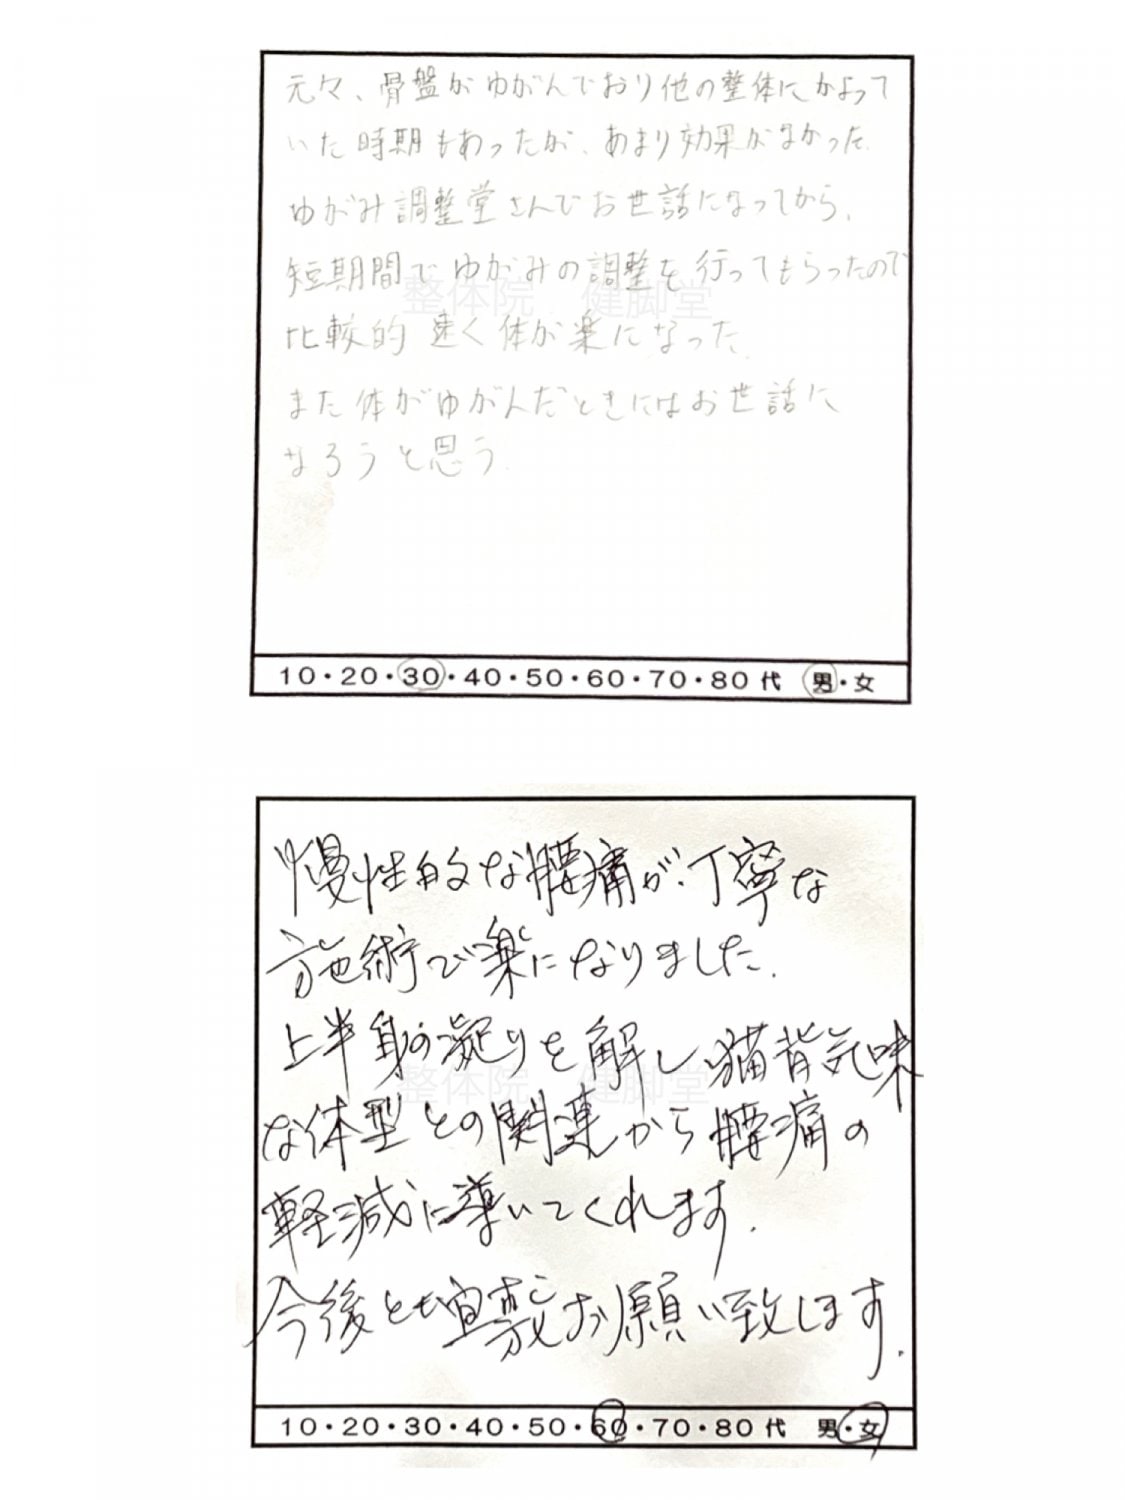 元々、骨盤がゆがんでおり他の整体にかよって
いた時期もあったが、あまり効果がなかった。
ゆがみ調整堂さんでお世話になってから、
短期間でゆがみの調整を行ってもらったので
整体院 健脚堂
比較的速く体が楽になった。
また体がゆがんだときにはお世話に
なろうと思う。
10・20・30・40・50・60・70・80代 男・女
慢性的な腰痛が、丁寧な
施術で楽になりました。
上半身の凝りを解し猫背気味
整体院 健脚堂
な体型との関連から腰痛の
軽減に導いてくれます。
今後とも宜敷お願い致します。
10・20・30・40・50・60・70・80代 男・女